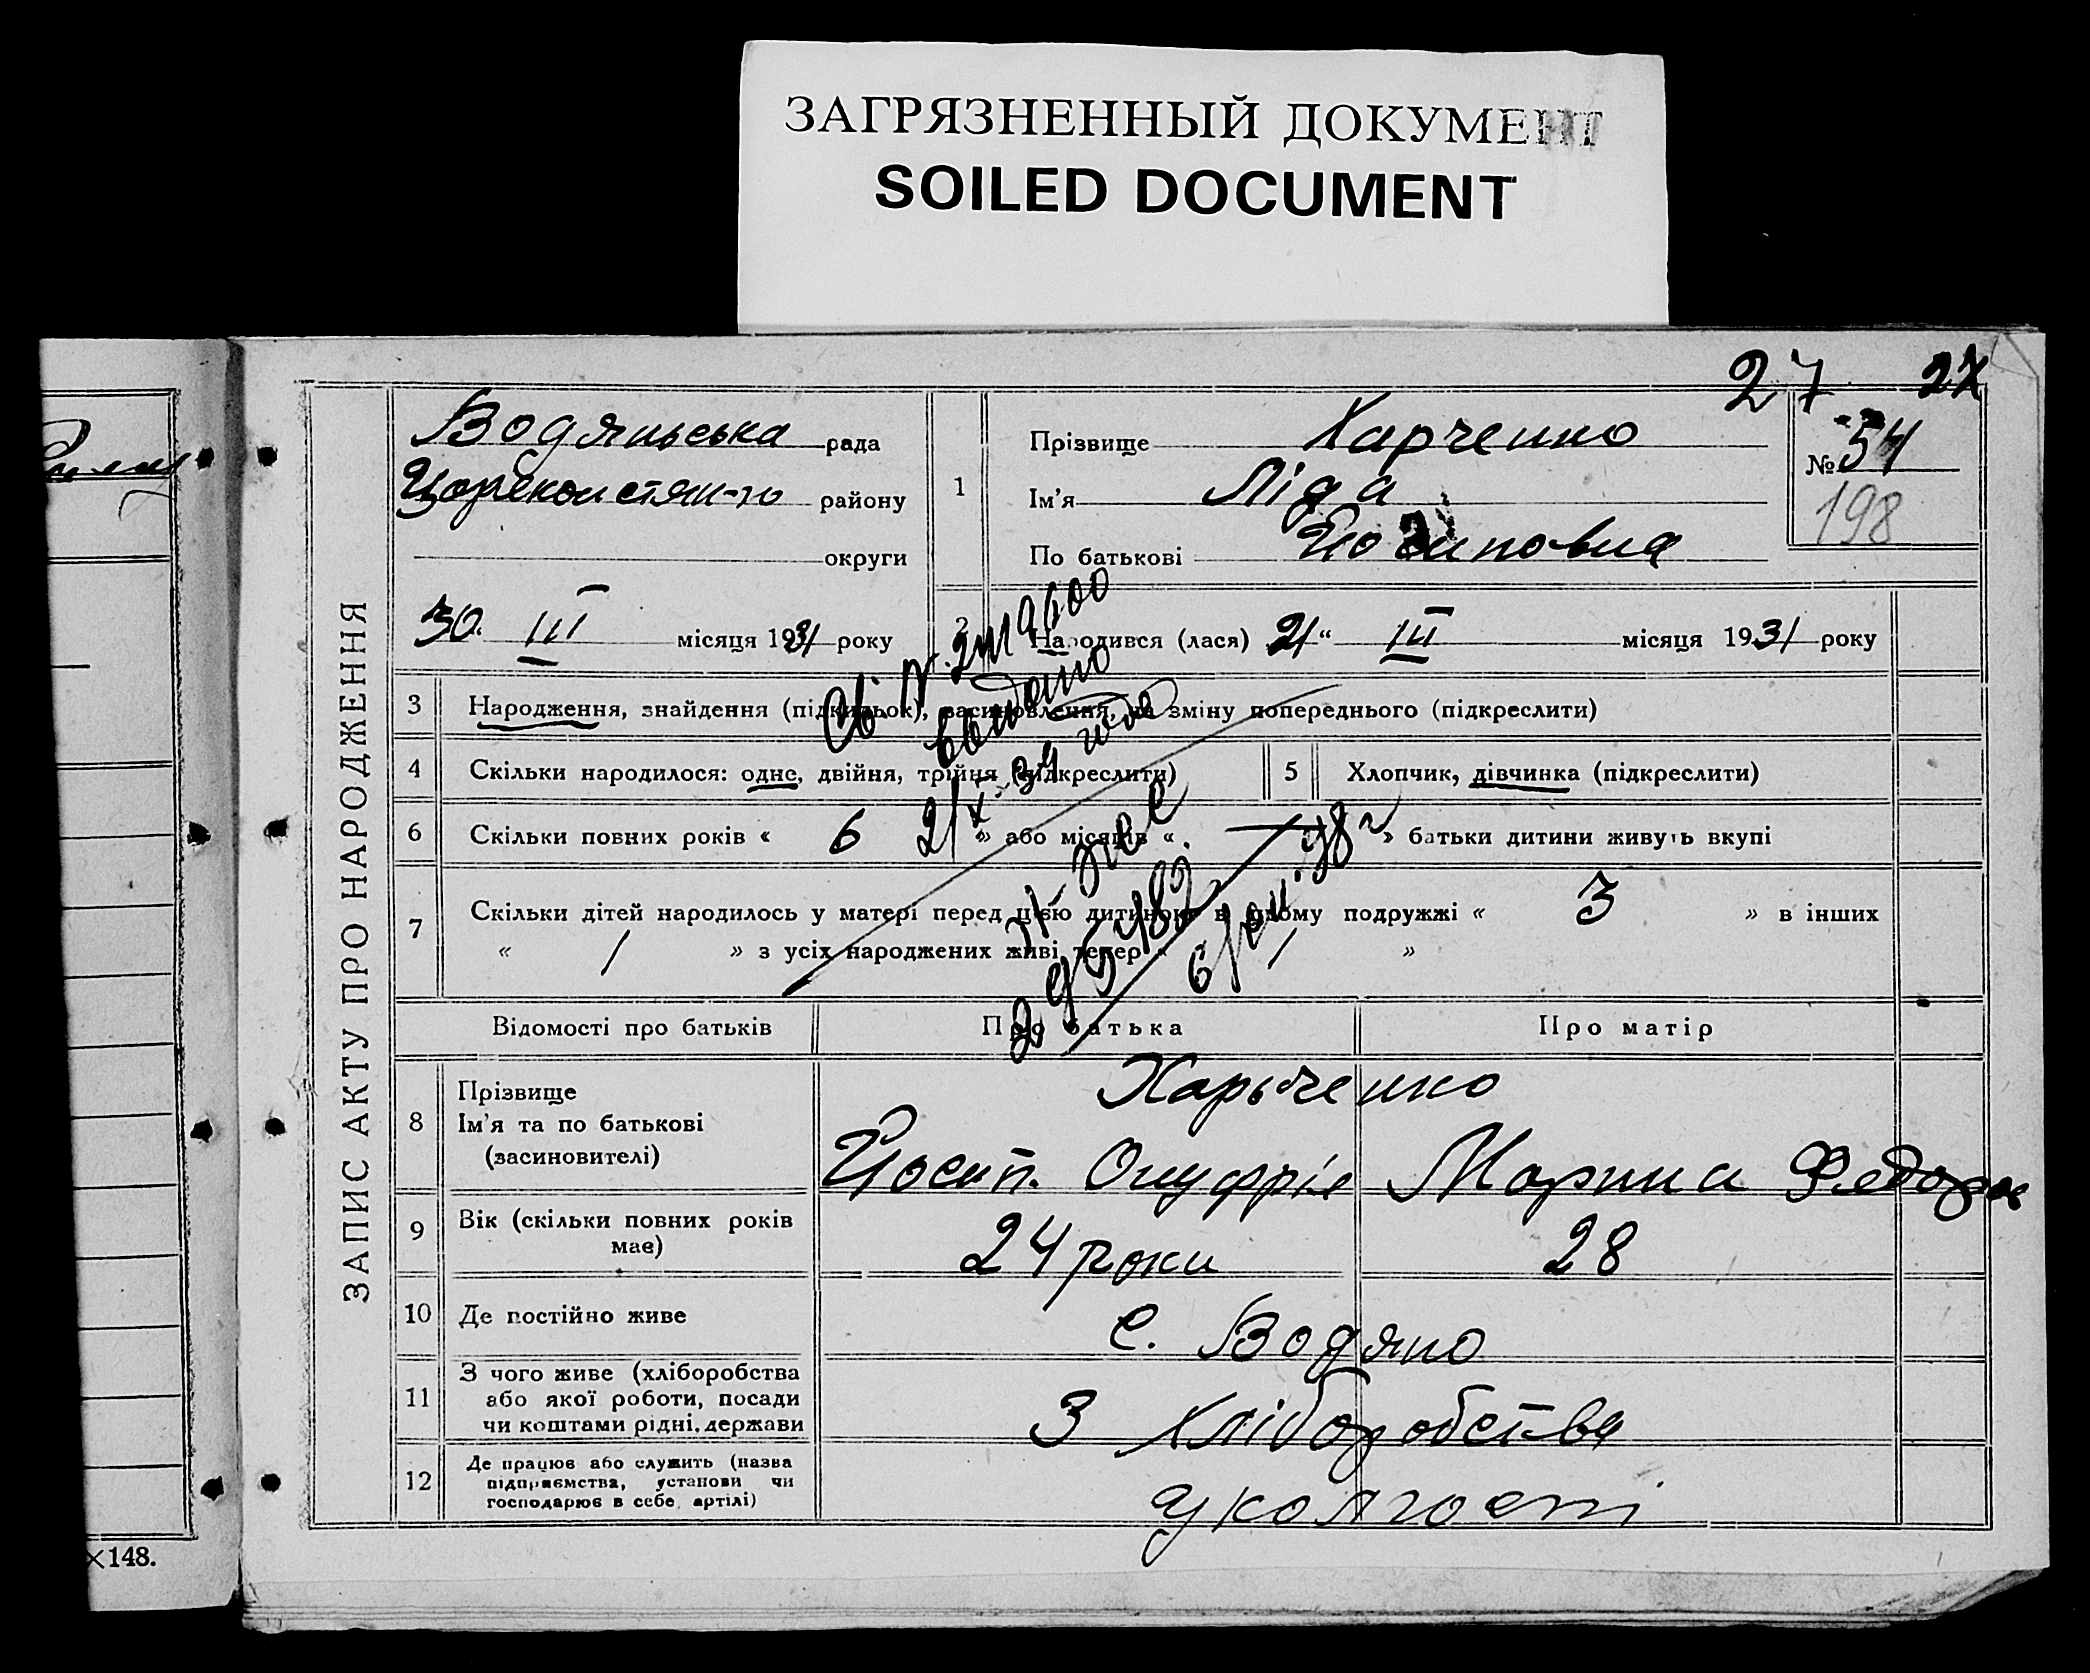 ЗАГРЯЗНЕННЫЙ ДОКУМЕНТ
SOILED DOCUMENT
27 27
ЗАПИС АКТУ ПРО НАРОДЖЕННЯ
Водяньська рада
району
округи
30. III місяця 1931 року
1
Прізвище Харченко
Ім'я Ліда
По батькові Йосиповна
№ 54
198
2 Народився (лася) 21 “ III місяця 1931 року
3 Народження, знайдення (підкидьок), засиновлення, на зміну попереднього (підкреслити)
4 Скільки народилося: одне, двійня, трійня (підкреслити) 5 Хлопчик, дівчинка (підкреслити)
6 Скільки повних років « 6 » або місяців « — » батьки дитини живуть вкупі
7 Скільки дітей народилось у матері перед цією дитиною в цьому подружжі « 3 » в інших
« / » з усіх народжених живі тепер « / »
Відомості про батьків Про батька Про матір
8 Прізвище
Ім'я та по батькові
(засиновителі)
Харьченко
Йосип. Онуфрія Марина Федоров
9 Вік (скільки повних років
має)
24 роки 28
10 Де постійно живе с. Водяно
11 З чого живе (хліборобства
або якої роботи, посади
чи коштами рідні, держави
З хліборобства
12 Де працює або служить (назва
підприємства, установи чи
господарює в себе, артілі)
у колгоспі
×148.